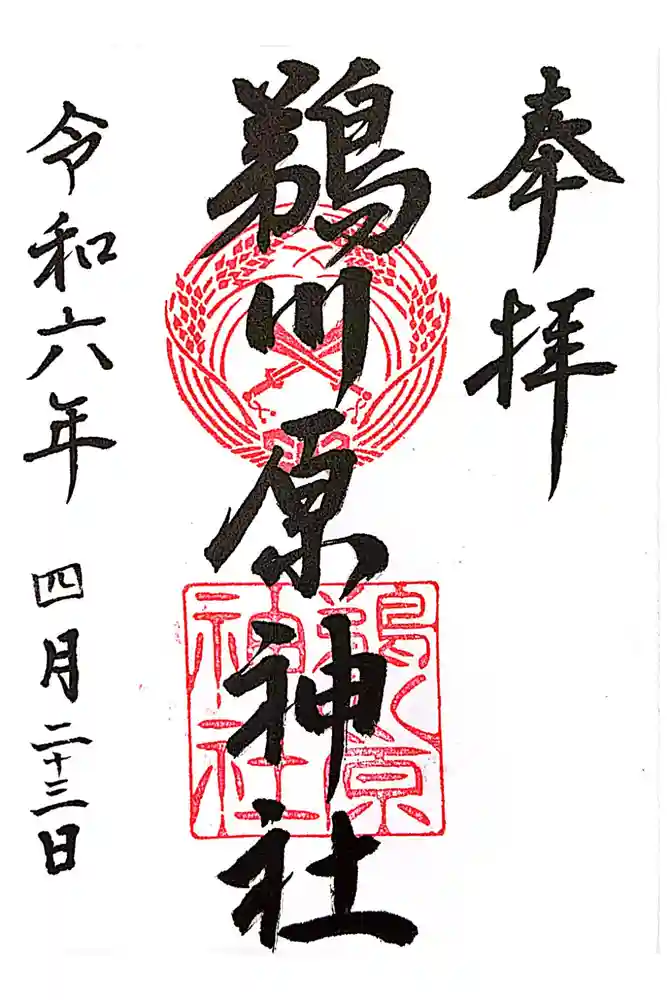 奉拝
鵜川原神社
鵜川原
神社
令和六年 四月二十三日